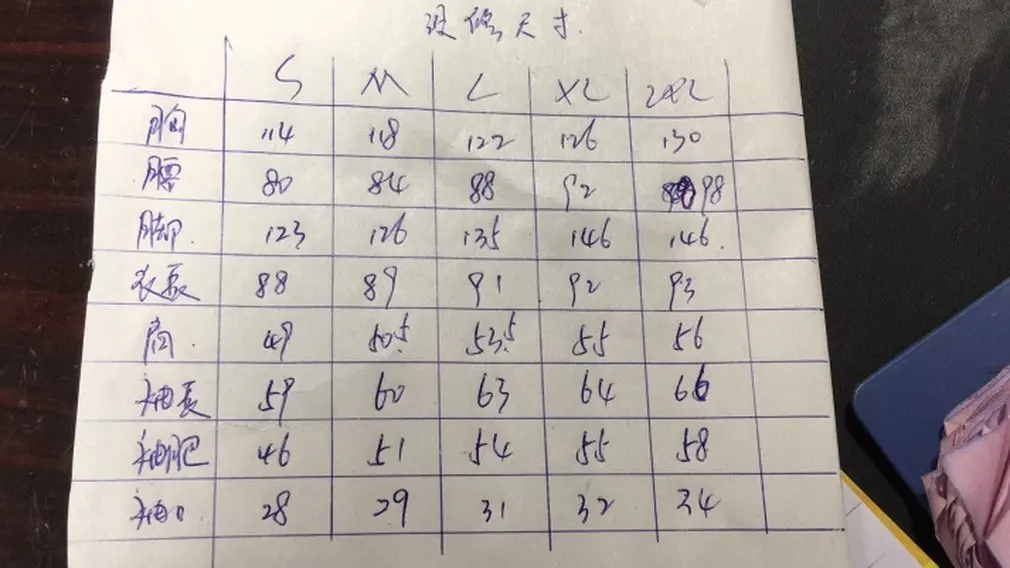 没修尺寸.
S M L XL 2XL
胸 114 118 122 126 130
腰 80 84 88 92 98
脚 123 126 135 146 146.
衣长 88 89 91 92 93
肩 49 50.5 53.5 55 56
袖長 59 60 63 64 66
袖肥 46 51 54 55 58
袖口 28 29 31 32 34